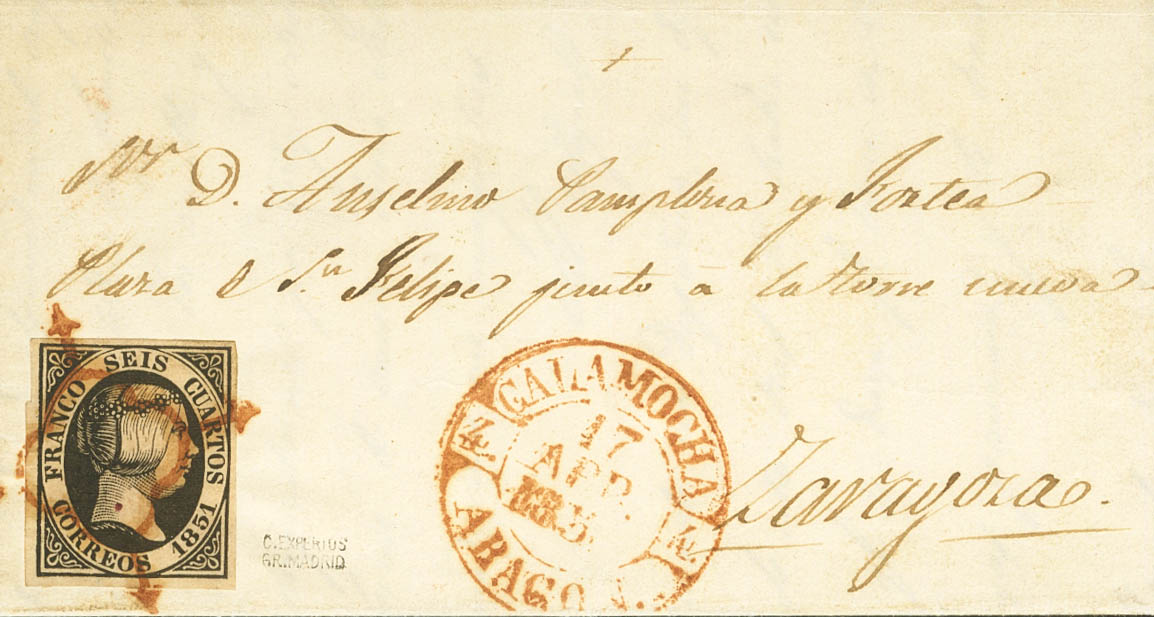 Sor D. Anselmo Pamplona y Fortea
Plaza de Sn. Felipe junto à la torre nueva
Zaragoza.
FRANCO SEIS CUARTOS
CORREOS 1851
CALAMOCHA
17
ABR.
ARAGON.
C.EXPERTOS
GR.MADRID